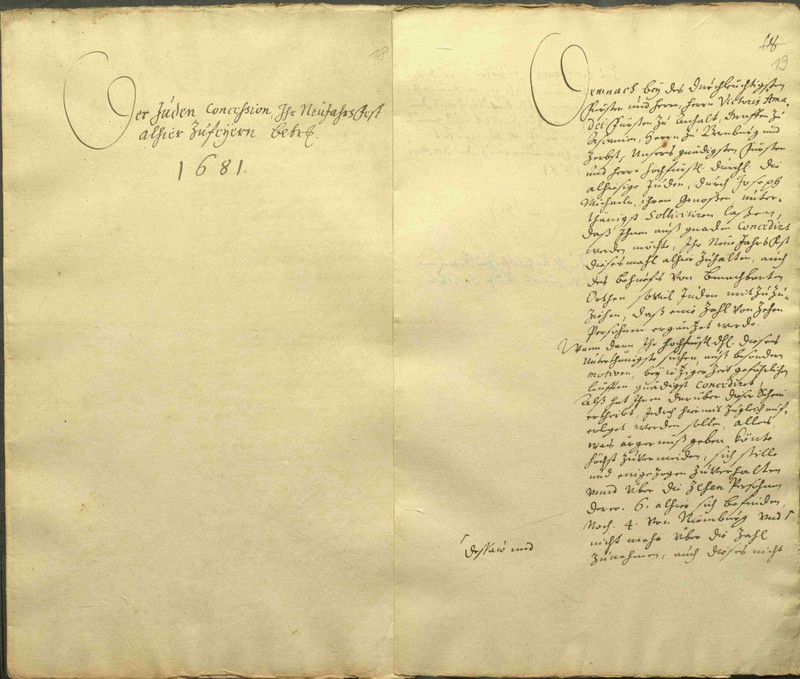 18
Der Juden Concession Ihr NeuJahrsFest
alhier Zufeyern betr.
1681.
18
19
Demnach bey des Durchleuchtigsten
Fürsten und Herrn, Herrn Victoris Ama-
dei Fürsten Zu Anhalt, Graffen Zu
Ascanien, Herrn Zu Bernburg und
Zerbst, Unsers gnädigsten Fürsten
und Herrn Hochfürstl. Durchl. die
alhiesige Juden, durch Joseph
Michaeln, ihren Genoßen, unter-
thänigst Sollicitiren laßen,
daß Ihnen auß gnaden Concedirt
werden möchte, Ihr NeueJahrsFest
dieses mahl alhier Zuhalten, auch
des behuefs von Benachbarten
Orthen soviel Juden mit Zuzu-
Ziehen, daß eine Zahl von Zehen
Persohnen ergäntzet werde.
Wann dann Ihr Hochfürstl. Dhl. dieses
Unterthänigste suchen auß besondern
motiven, bey itziger Zeit gefährlichen
leufften gnädigst Concediret,
Alß hat Ihnen darüber dieser Schein
ertheilet, Jedoch hiermit Zugleich auf-
erleget werden sollen, alles
was ärgernüß geben könte
höchst Zuvermeiden, sich stille
und eingezogen Zuverhalten
unnd über die Zehen Persohnen
derer 6. alhier sich befinden
Noch 4. von Nienburg und
nicht mehr über die Zahl
Zunehmen, auch dieses nicht
Dessaw und